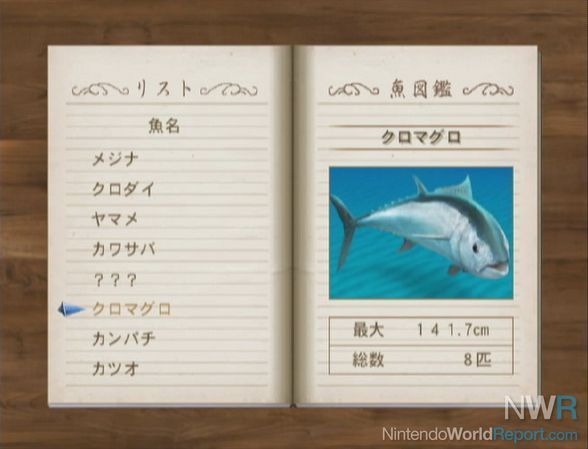 リスト
魚名
メジナ
クロダイ
ヤマメ
カワサバ
？？？
クロマグロ
カンパチ
カツオ
魚図鑑
クロマグロ
最大 141.7cm
総数 8匹
NWR
NintendoWorldReport.com